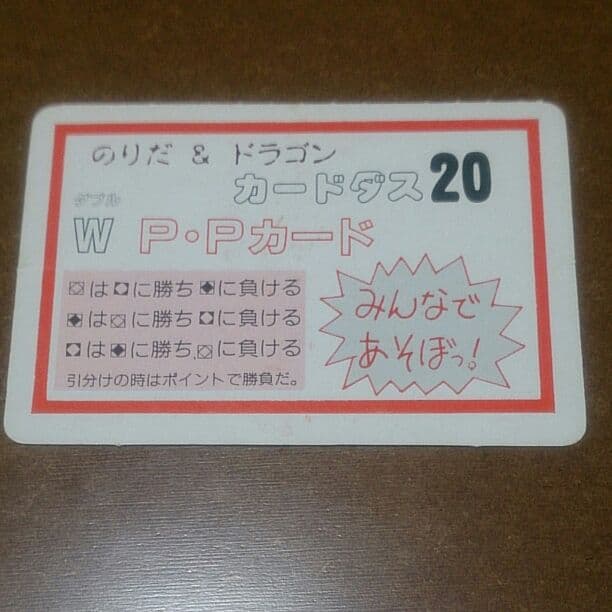 のりだ & ドラゴン
カードダス20
ダブル
W P・Pカード
は に勝ち に負ける
は に勝ち に負ける
は に勝ち, に負ける
引分けの時はポイントで勝負だ。
みんなで
あそぼっ!